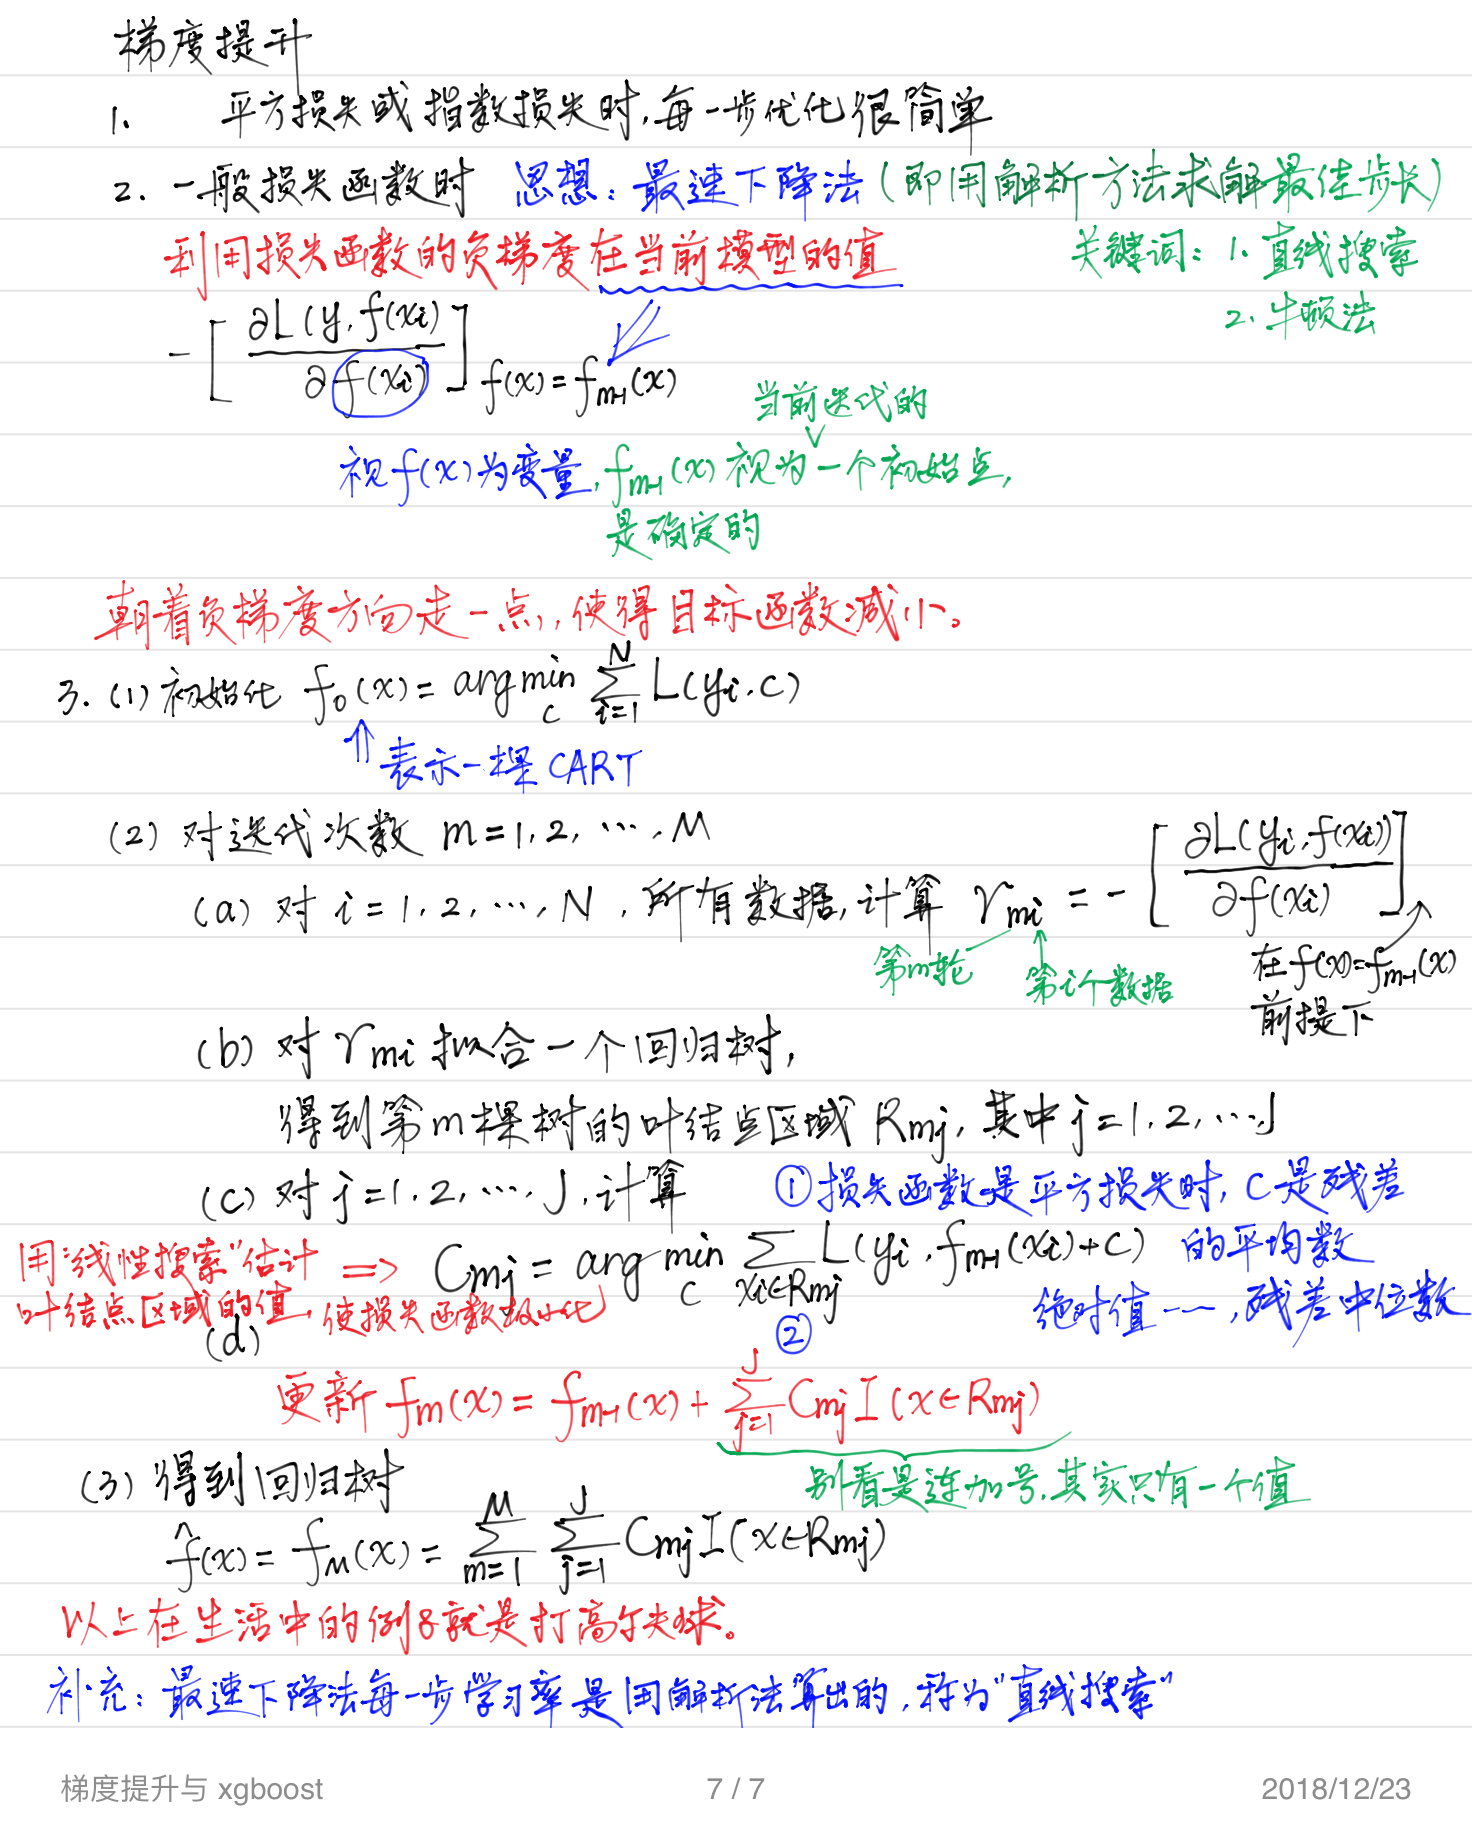 梯度提升
1. 平方损失或指数损失时,每一步优化很简单
2. 一般损失函数时 思想:最速下降法(即用解析方法求解最佳步长)
利用损失函数的负梯度在当前模型的值
关键词:1. 直线搜索
2. 牛顿法
-[∂L(y, f(xi) / ∂f(xi)] f(x)=fm-1(x)
当前迭代的
视f(x)为变量, fm-1(x)视为一个初始点,
是确定的
朝着负梯度方向走一点,使得目标函数减小。
3. (1) 初始化 f0(x)= argmin c ∑ i=1 N L(yi, c)
⇑ 表示一棵 CART
(2) 对迭代次数 m=1, 2, ⋯, M
(a) 对 i=1, 2, ⋯, N, 所有数据, 计算 rmi = -[∂L(yi, f(xi)) / ∂f(xi)]
第m轮 第i个数据 在f(x)=fm-1(x)
前提下
(b) 对 rmi 拟合一个回归树,
得到第m棵树的叶结点区域 Rmj, 其中 j=1, 2, ⋯, J
(c) 对 j=1, 2, ⋯, J, 计算 ① 损失函数是平方损失时, C是残差
的平均数
用"线性搜索"估计 ⇒ Cmj = argmin c ∑ xi∈Rmj L(yi, fm-1(xi)+c)
叶结点区域的值, 使损失函数极小化
② 绝对值⋯⋯, 残差中位数
(d)
更新 fm(x) = fm-1(x) + ∑ j=1 J Cmj I(x∈Rmj)
别看是连加号, 其实只有一个值
(3) 得到回归树
f̂(x) = fM(x) = ∑ m=1 M ∑ j=1 J Cmj I(x∈Rmj)
以上在生活中的例子就是打高尔夫球。
补充: 最速下降法每一步学习率是用解析法算出的, 称为"直线搜索"
梯度提升与 xgboost 7 / 7 2018/12/23